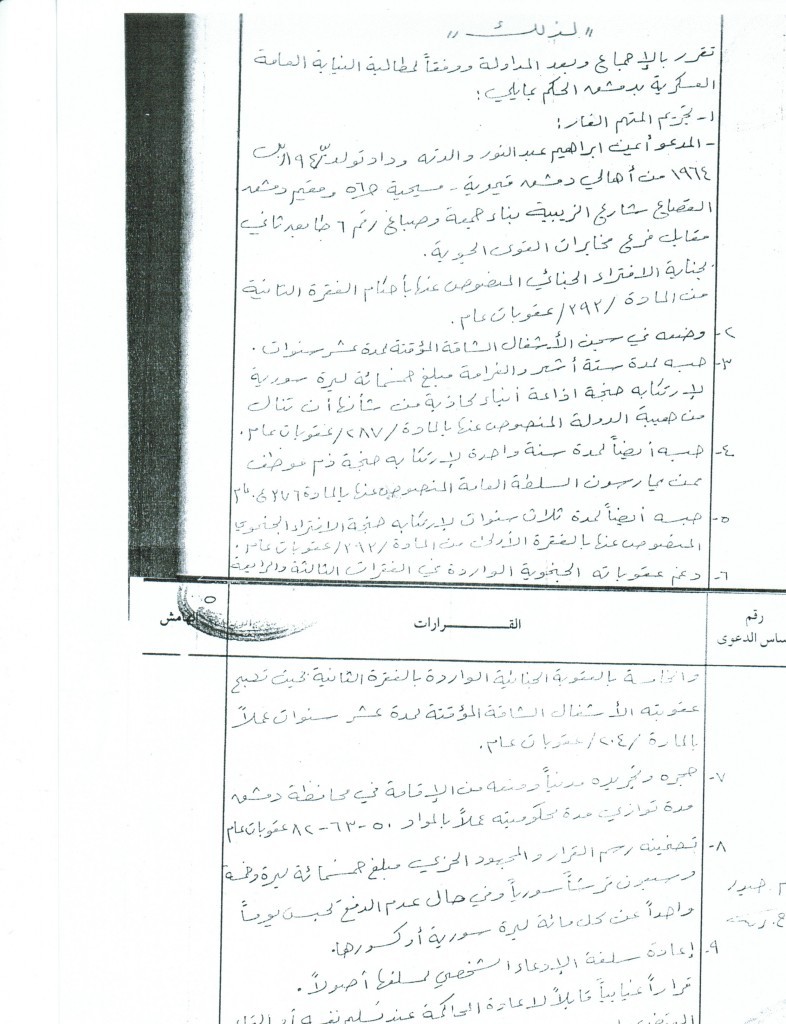 " لذلك "
تقرر بالإجماع وبعد المداولة ووفقاً لمطالبة النيابة العامة
العسكرية بدمشق الحكم بمايلي :
١- تجريم المتهم الفار :
- المدعو أمين ابراهيم عبد النور والدته وداد تولد
١٩٦٤ من أهالي دمشق قيمرية - مسيحية ومقيم دمشق
القصاع شارع الزينبية بناء جمعة وصباغ رقم ٦ طابق ثاني
مقابل فرع مخابرات القوى الجوية .
بجناية الافتراء الجنائي المنصوص عنها بأحكام الفقرة الثانية
من المادة /٣٩٣/ عقوبات عام .
٢- وضعه في سجن الأشغال الشاقة المؤقتة لمدة عشر سنوات .
٣- حبسه لمدة ستة أشهر والغرامة مبلغ خمسمائة ليرة سورية
لإرتكابه جنحة اذاعة أنباء كاذبة من شأنها أن تنال
من هيبة الدولة المنصوص عنها بالمادة /٢٨٧/ عقوبات عام .
٤- حبسه أيضاً لمدة سنة واحدة لإرتكابه جنحة ذم موظف
ممن يمارسون السلطة العامة المنصوص عنها بالمادة ٣٧٦
٥- حبسه أيضاً لمدة ثلاث سنوات لإرتكابه جنحة الافتراء الجنحوي
المنصوص عنها بالفقرة الأولى من المادة /٣٩٣/ عقوبات عام .
٦- دغم عقوباته الجنحوية الواردة في الفقرات الثالثة والرابعة
رقم
ساس الدعوى
القـــرارات
الهامش
٥
والخامسة بالعقوبة الجنائية الواردة بالفقرة الثانية بحيث تصبح
عقوبته الأشغال الشاقة المؤقتة لمدة عشر سنوات عملاً
بالمادة /٢٠٤/ عقوبات عام .
٧- حجره وتجريده مدنياً ومنعه من الإقامة في محافظة دمشق
مدة توازي مدة محكوميته عملاً بالمواد ٥٠-٦٣-٨٢ عقوبات عام
٨- تضمينه رسم القرار والمجهود الحربي مبلغ خمسمائة ليرة وخمسة
وسبعون قرشاً سورياً وفي حال عدم الدفع يحبس يوماً
واحداً عن كل مائة ليرة سورية أو كسورها .
٩- إعادة سلفة الإدعاء الشخصي لمسلفها أصولاً .
قراراً غيابياً قابلاً لاعادة المحاكمة عند تسليم نفسه أو القاء